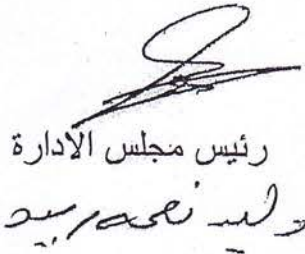 رئيس مجلس الادارة
وليد نعمه